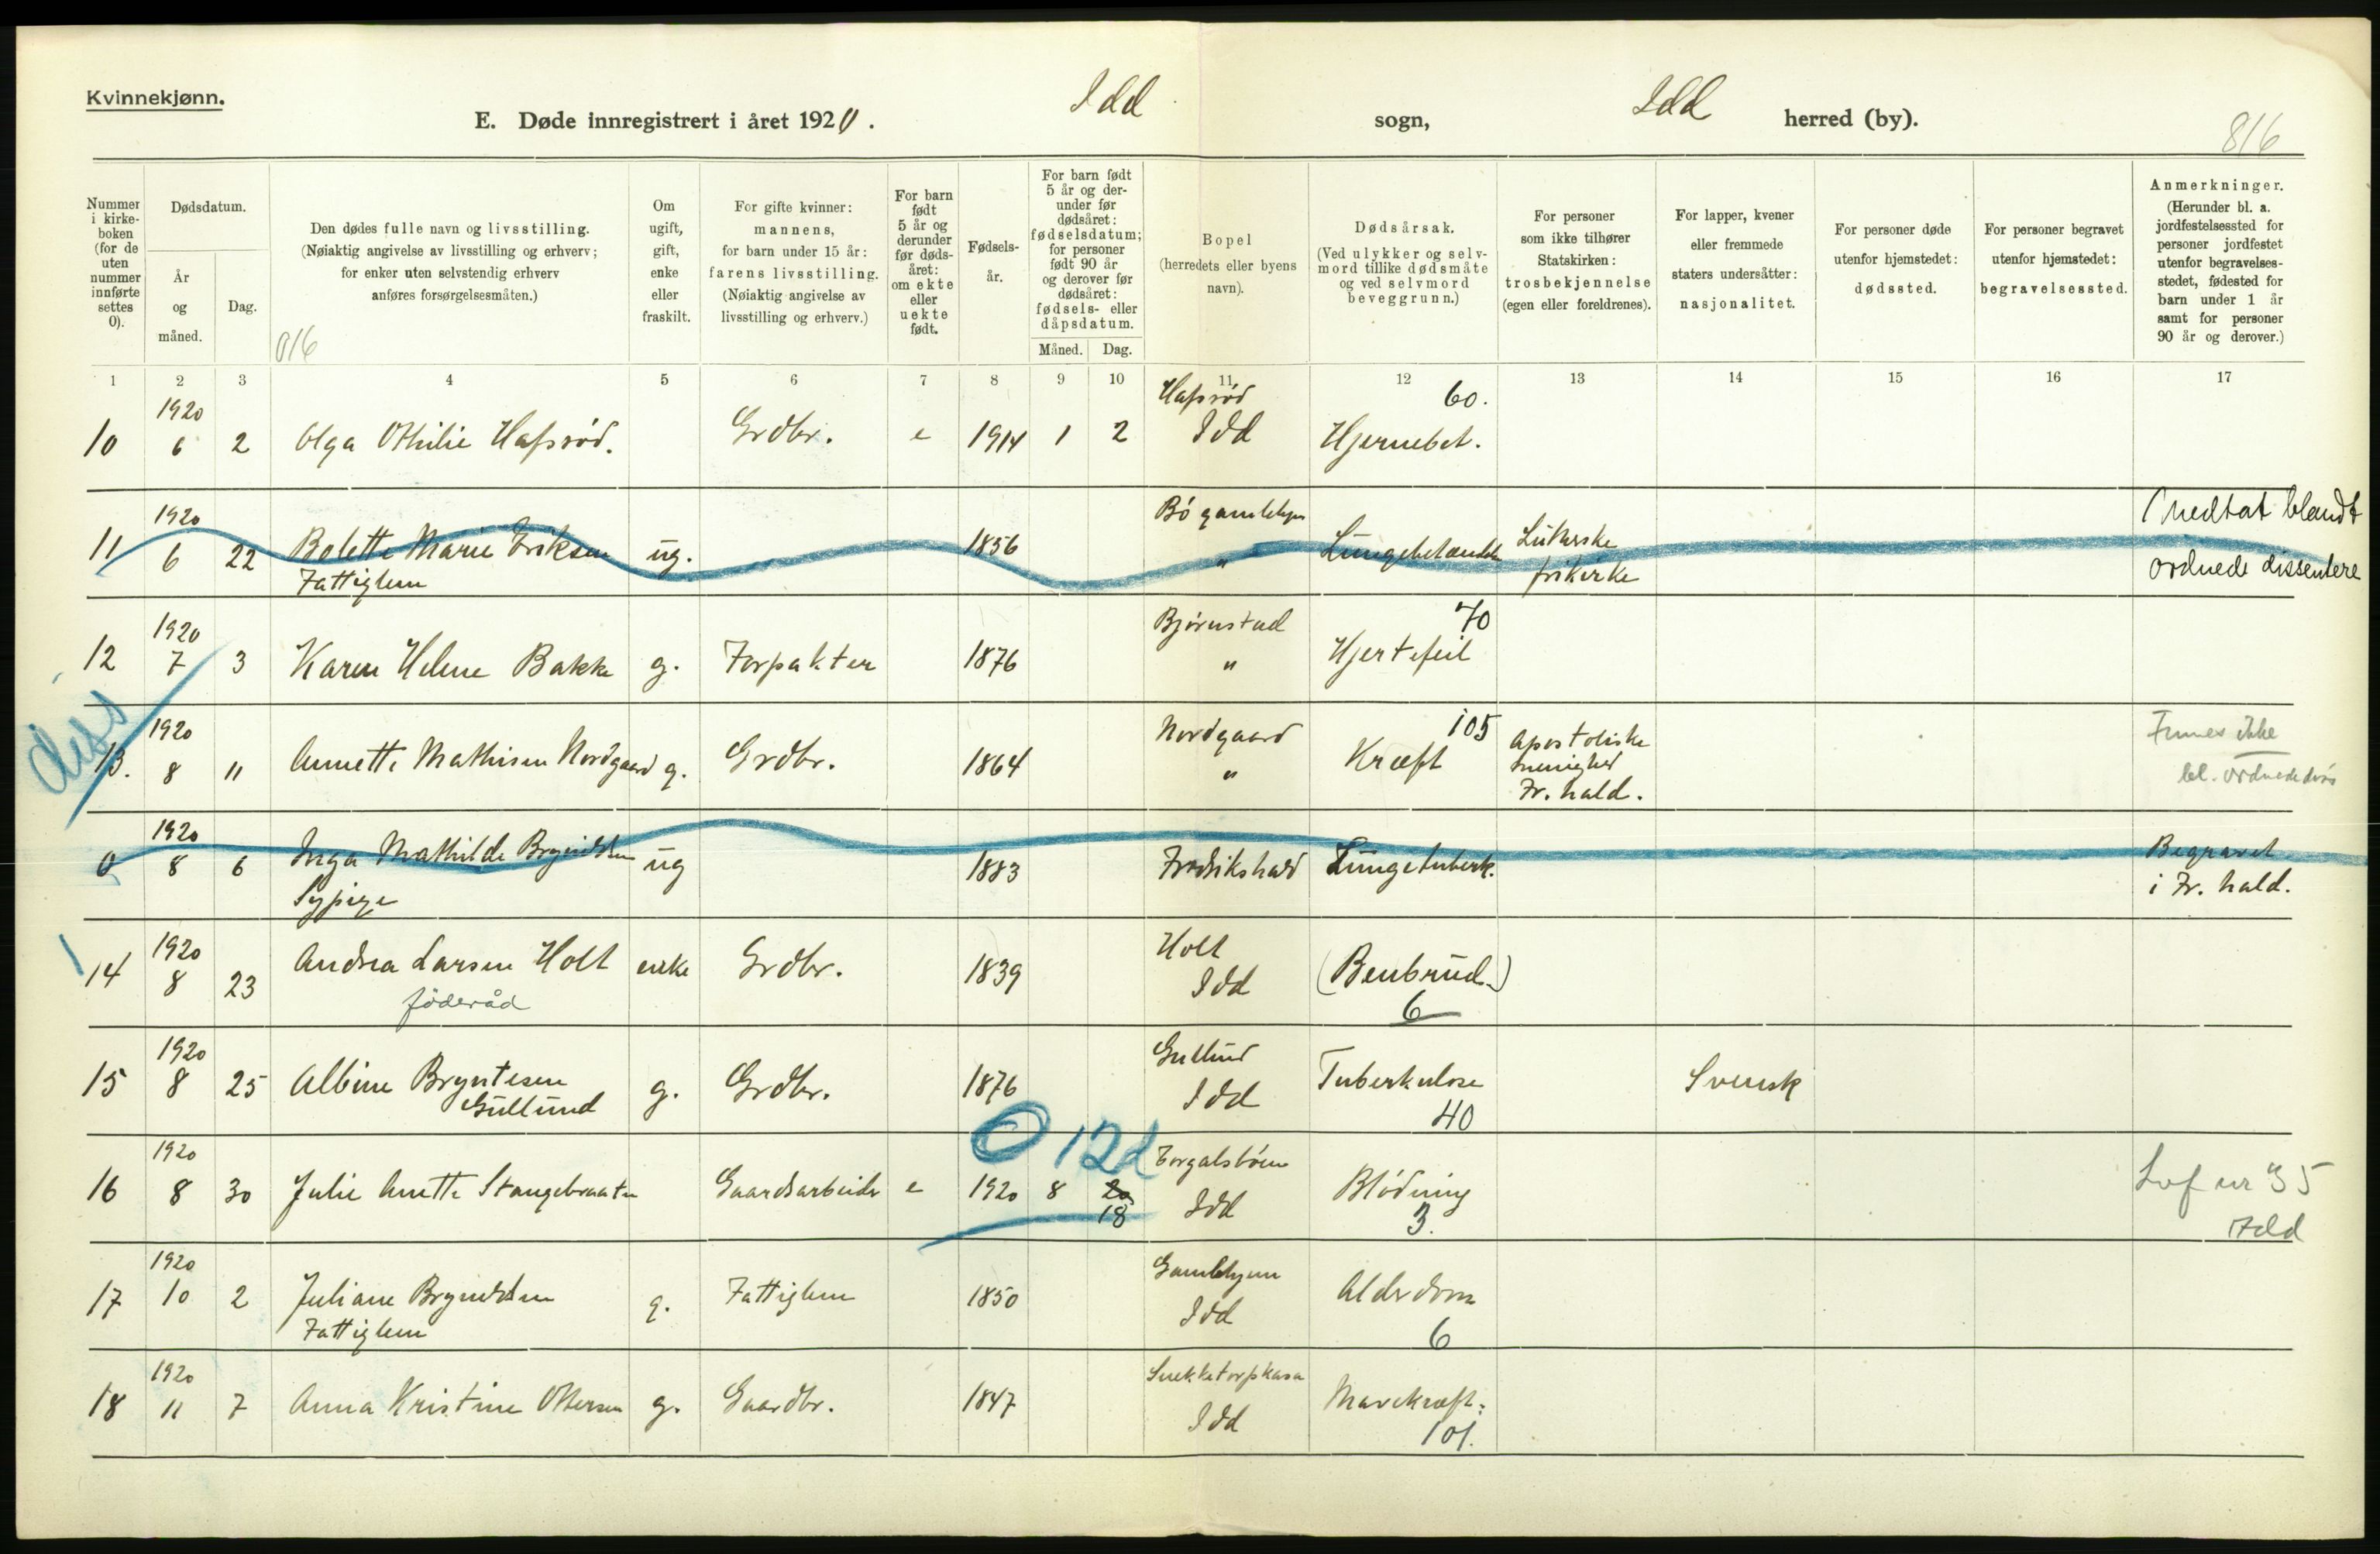 Kvinnekjønn.
E. Døde innregistrert i året 1920. Idd sogn, Idd herred (by).
816
Nummer i kirkeboken (for de uten nummer innførte settes 0).
Dødsdatum.
År og måned.
Dag.
Den dødes fulle navn og livsstilling.
(Nøiaktig angivelse av livsstilling og erhverv;
for enker uten selvstendig erhverv
anføres forsørgelsesmåten.)
016
Om ugift, gift, enke eller fraskilt.
For gifte kvinner:
mannens,
for barn under 15 år:
farens livsstilling.
(Nøiaktig angivelse av
livsstilling og erhverv.)
For barn født 5 år og derunder før dødsåret: om ekte eller uekte født.
Fødselsår.
For barn født 5 år og derunder før dødsåret: fødselsdatum; for personer født 90 år og derover før dødsåret: fødsels- eller dåpsdatum.
Måned. Dag.
Bopel
(herredets eller byens
navn).
Dødsårsak.
(Ved ulykker og selvmord tillike dødsmåte
og ved selvmord
beveggrunn.)
For personer
som ikke tilhører
Statskirken:
trosbekjennelse
(egen eller foreldrenes).
For lapper, kvener
eller fremmede
staters undersåtter:
nasjonalitet.
For personer døde
utenfor hjemstedet:
dødssted.
For personer begravet
utenfor hjemstedet:
begravelsessted.
Anmerkninger.
(Herunder bl. a.
jordfestelsessted for
personer jordfestet
utenfor begravelsesstedet, fødested for
barn under 1 år
samt for personer
90 år og derover.)
1 2 3 4 5 6 7 8 9 10 11 12 13 14 15 16 17
10 1920 6 2 Olga Othilie Hafsrød. Grdbr. e 1914 1 2 Hafsrød Idd 60. Hjernebet.
11 1920 6 22 Bolette Marie Eriksen Fattiglem ug. 1856 Bö gamlehjem " Lungebetændelse Lutherske frikirke Medtat blandt ordnede dissentere
12 1920 7 3 Karen Helene Bakke g. Forpakter 1876 Bjørnstad " 70 Hjertefeil
diss
13. 1920 8 11 Annette Mathisen Nordgaard g. Grdbr. 1864 Nordgaard " 105 Kræft Apostoliske menighed Fr.hald. Finnes ikke bl. ordnede diss
0 1920 8 6 Inga Mathilde Brynildsen Sypige ug 1883 Fredrikshald Lungetuberk. Begravet i Fr. hald.
14 1920 8 23 Andrea Larsen Holt föderåd enke Grdbr. 1839 Holt Idd (Benbrud.) 6
15 1920 8 25 Albine Bryntesen Gullund g. Grdbr. 1876 Gullund Idd Tuberkulose 40 Svensk
0 12d
16 1920 8 30 Julie Anette Stangebraaten Gaardsarbeider e 1920 8 20 18 Idd Blödning 3. Lof nr 35 Idd
17 1920 10 2 Juliane Brynildsen Fattiglem g. Fattiglem 1850 Gamlehjem Idd Alderdom 6
18 1920 11 7 Anna Kristine Ottersen g. Gaardbr. 1847 Idd Mavekræft. 101.